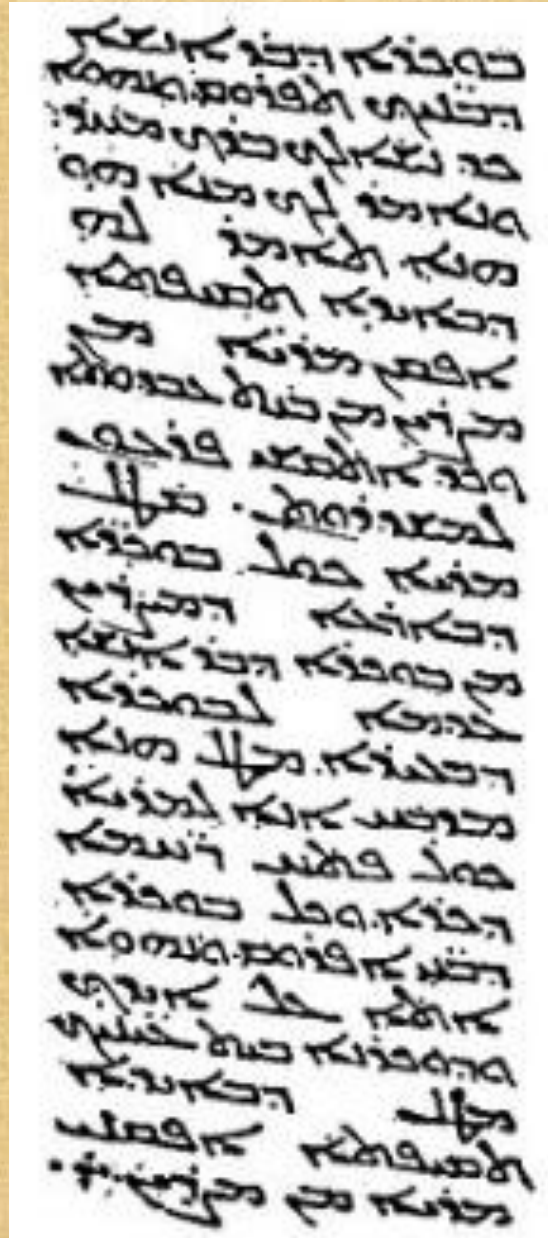 ܒܘܟܪܐ ܕܒܪ ܐܢܫܐ
ܕܒܢܝܟ ܬܦܪܘܩ. ܘܢܗܘܐ
ܟܕ ܢܫܐܠܟ ܒܪܟ ܡܚܪ:
ܘܢܐܡܪ ܠܟ ܡܢܐ ܗܘ
ܗܢܐ. ܬܐܡܪ ܠܗ
ܕܒܐܝܕܐ ܬܩܝܦܬܐ
ܐܦܩܢ ܡܪܝܐ ܡܢ
ܡܨܪܝܢ ܡܢ ܒܝܬ ܥܒܕܘܬܐ
ܘܟܕ ܐܬܩܫܝ ܦܪܥܘܢ
ܠܡܫܕܪܘܬܢ. ܩܛܠ
ܡܪܝܐ ܟܘܠ ܒܘܟܪܐ
ܕܒܐܪܥܐ ܕܡܨܪܝܢ
ܡܢ ܒܘܟܪܐ ܕܒܪ ܐܢܫܐ
ܥܕܡܐ ܠܒܘܟܪܐ
ܕܒܥܝܪܐ. ܡܛܠ ܗܢܐ
ܡܕܒܚ ܐܢܐ ܠܡܪܝܐ
ܟܘܠ ܦܬܚ ܪ̈ܚܡܐ
ܕܟܪܐ. ܘܟܠ ܒܘܟܪܐ
ܕܒܢܝ̈ ܐܦܪܘܩ. ܘܢܗܘܐ
ܐܬܐ ܥܠ ܐܝܕܟ
ܘܕܘܟܪܢܐ ܒܝܬ ܥܝ̈ܢܝܟ
ܡܛܠ ܕܒܐܝܕܐ
ܬܩܝܦܬܐ ܐܦܩܢ
ܡܪܝܐ ܡܢ ܡܨܪܝܢ.